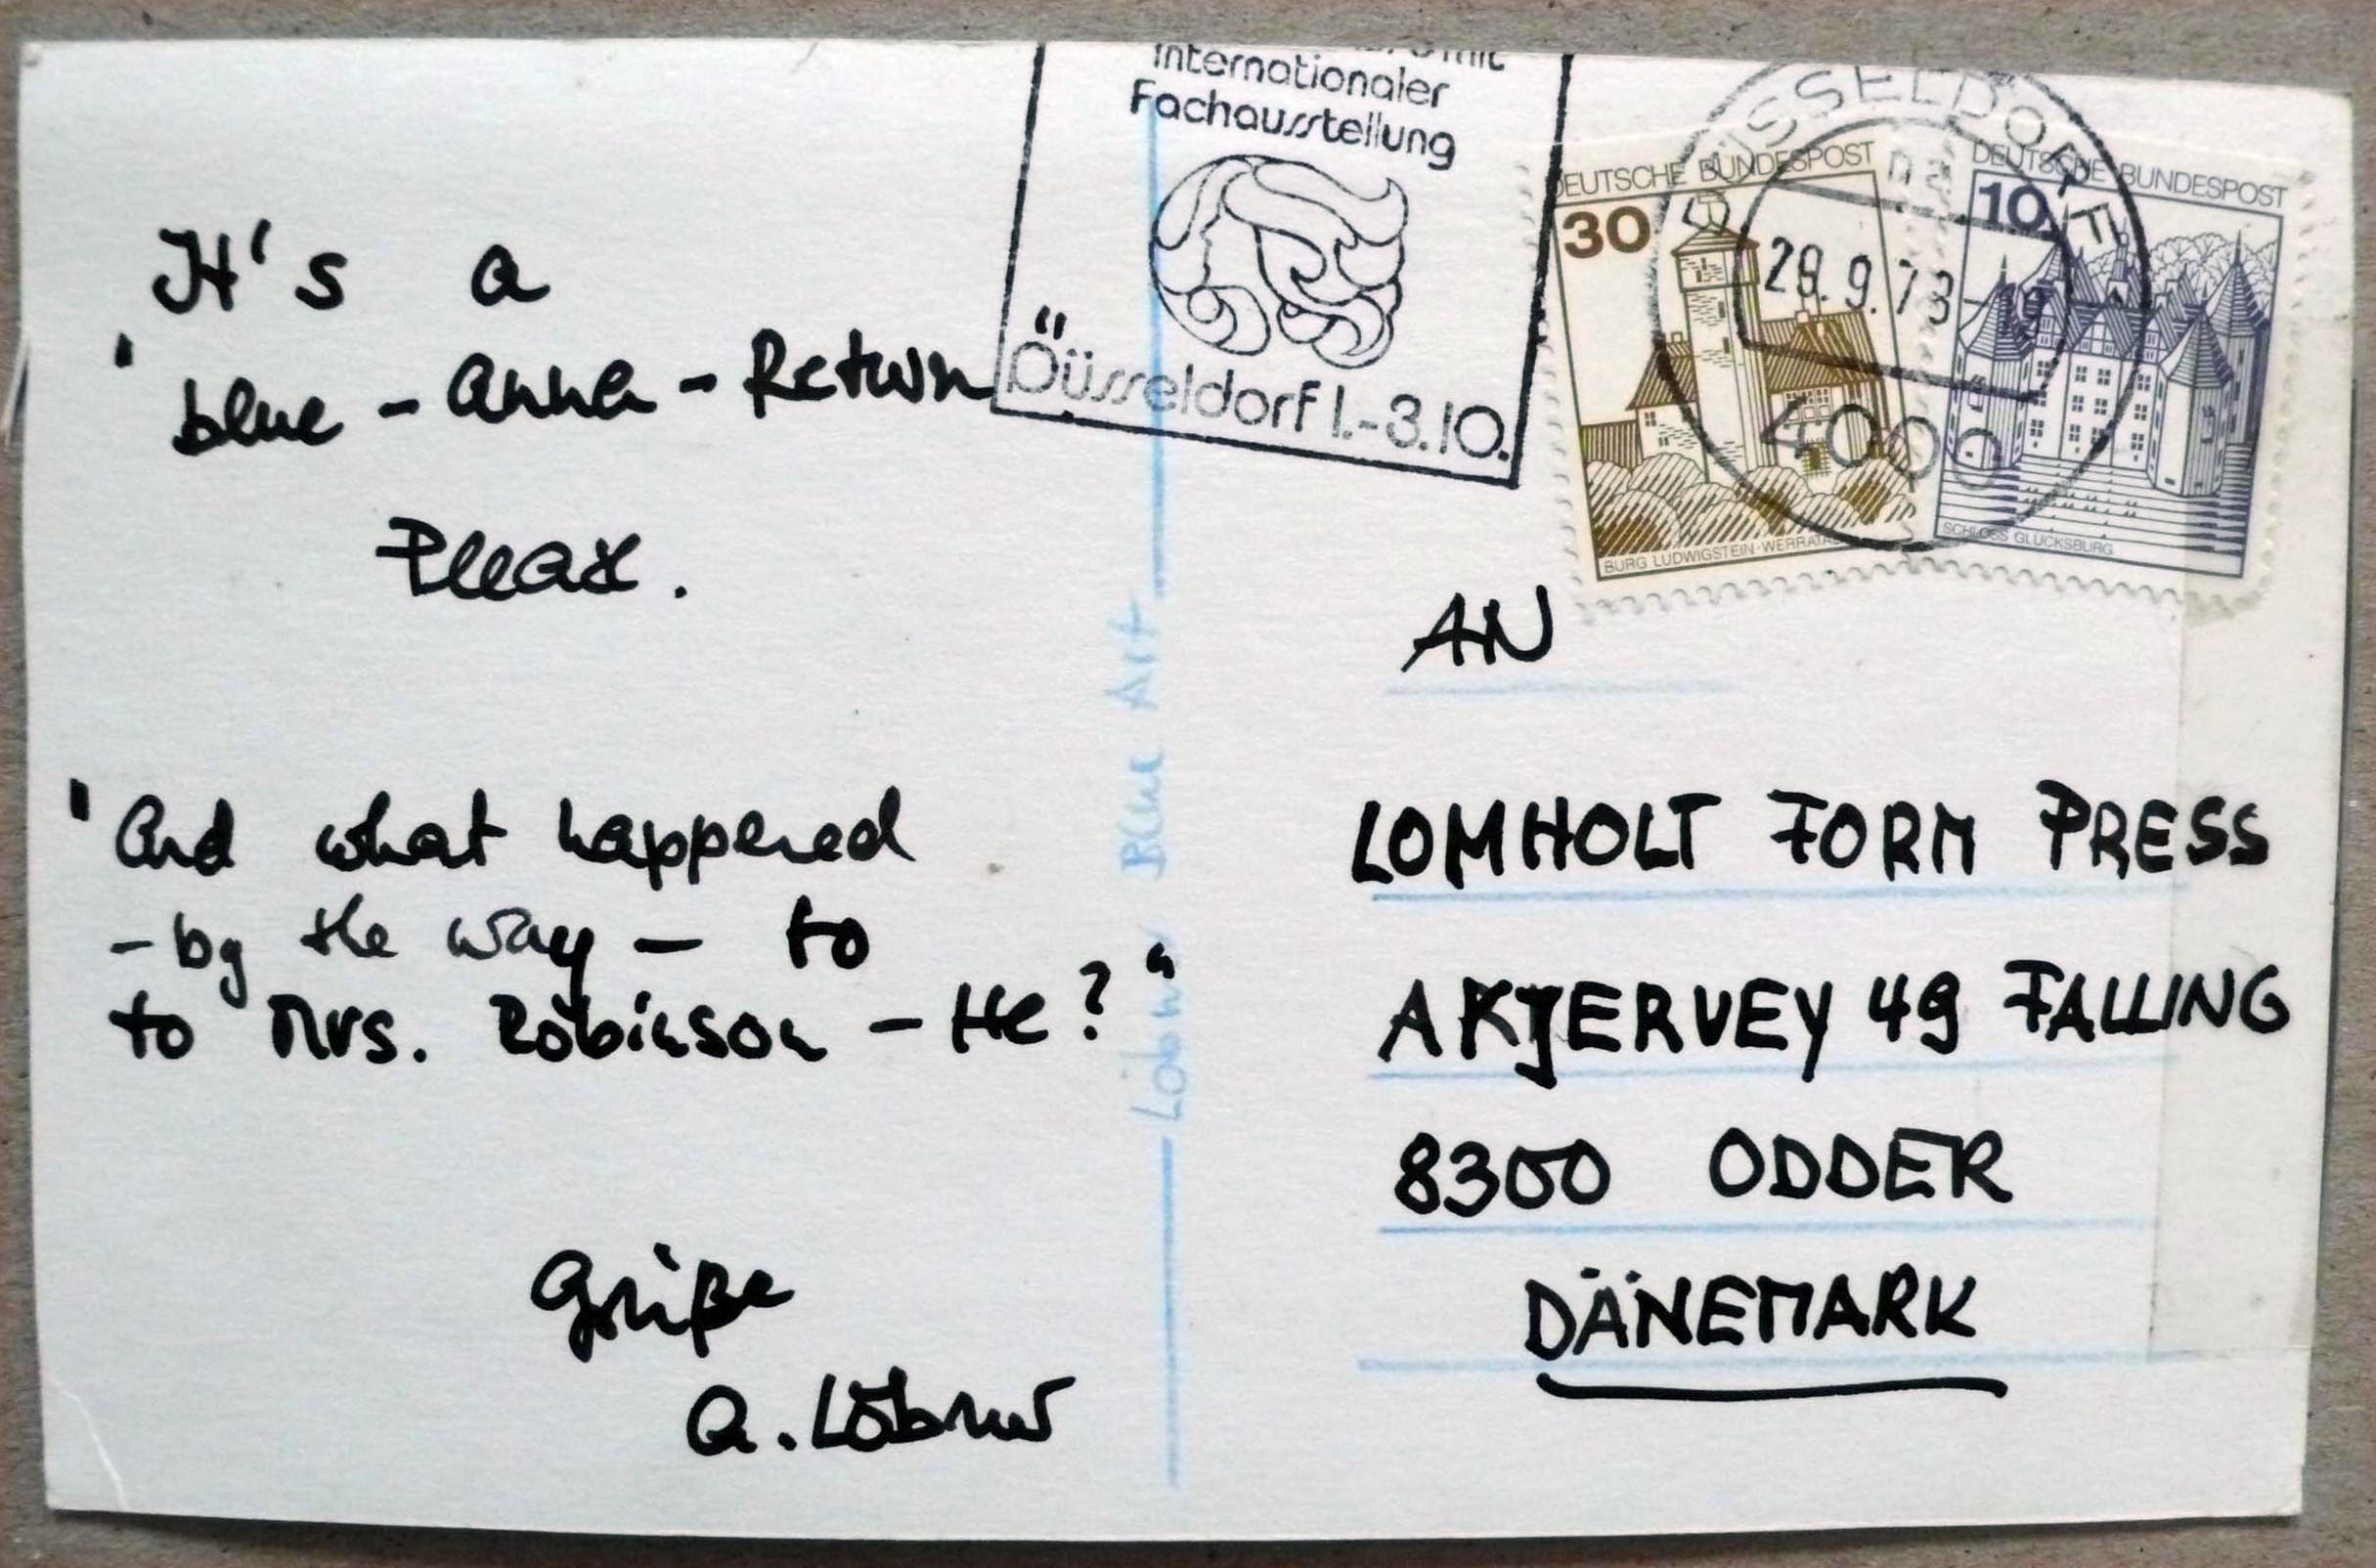 It's a
" blue - Anna - Return "
Please.
" And what happened
- by the way - to
to Mrs. Robinson - He? "
Grüße
A. Löbner
Löbner Blue Art
Internationaler
Fachausstellung
Düsseldorf 1.-3.10.
DÜSSELDORF
4000
DEUTSCHE BUNDESPOST
30
BURG LUDWIGSTEIN · WERRATAL
DEUTSCHE BUNDESPOST
10
SCHLOSS GLÜCKSBURG
AN
LOMHOLT FORM PRESS
AKJERVEY 49 FALLING
8300 ODDER
DÄNEMARK